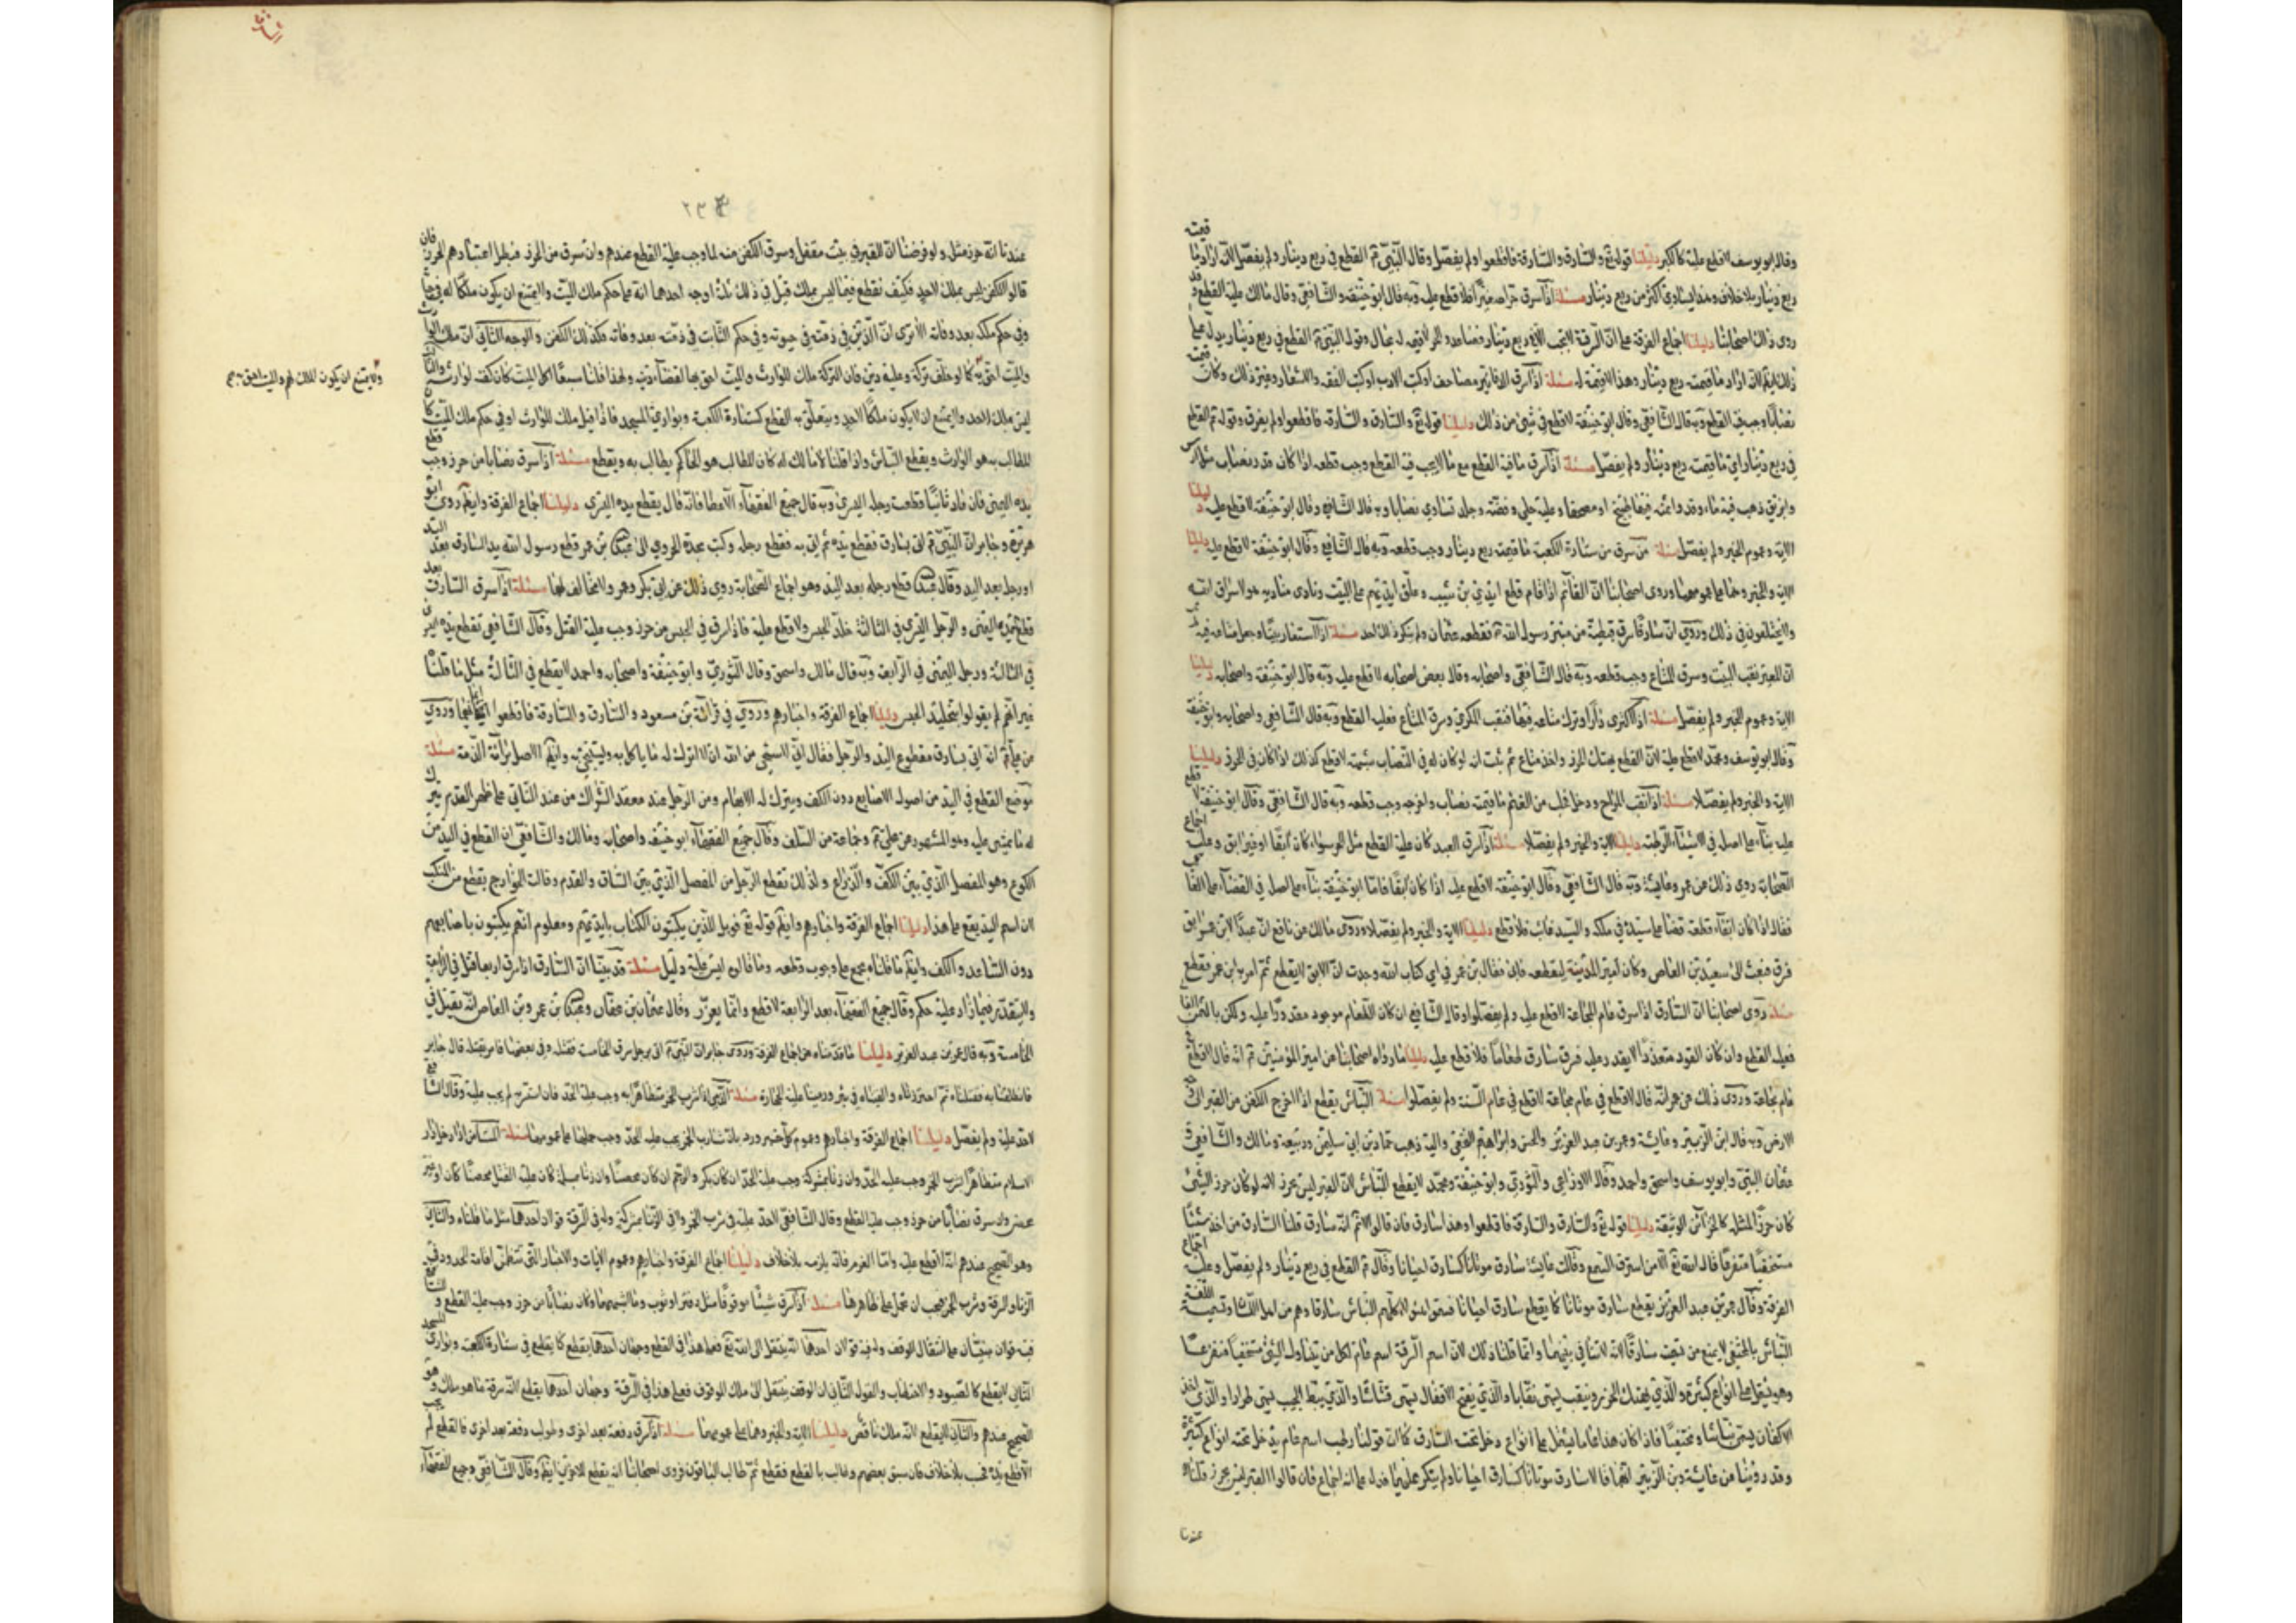 وقال ابو يوسف لا قطع عليه كالكبير دليلنا قوله تع والسارق والسارقة فاقطعوا ولم يفصل وقال النبي ع القطع في ربع دينار ولم يفصل لانه اراد ما قيمته
ربع دينار بلا خلاف وهذا يساوي اكثر من ربع دينار مسئلة اذا سرق حرا صغيرا فلا قطع عليه وبه قال ابو حنيفة والشافعي وقال مالك عليه القطع وقد
روى ذلك اصحابنا دليلنا اجماع الفرقة على ان السرقة لا تجب الا في ربع دينار فصاعدا والحر لا قيمة له بحال وقول النبي ع القطع في ربع دينار يدل على
ذلك ايضا لانه اراد ما قيمته ربع دينار وهذا لا قيمة له مسئلة اذا سرق الدفاتير مصاحف او كتب الادب او كتب الفقه والاشعار وغير ذلك وكان قيمته
نصابا وجب فيه القطع وبه قال الشافعي وقال ابو حنيفة لا قطع في شيء من ذلك دليلنا قوله تع والسارق والسارقة فاقطعوا ولم يفرق وقوله ع القطع
في ربع دينار اي ما قيمته ربع دينار ولم يفصل مسئلة اذا سرق ما فيه القطع مع ما لا يجب فيه القطع وجب قطعه اذا كان قدر نصاب مثل ان سرق
وابريق ذهب فيه ماء وقدرا ثمينة فيها طبيخ او مصحفا وعليه حلي وفضة وجلد تساوي نصابا وبه قال الشافعي وقال ابو حنيفة لا قطع عليه دليلنا
الاية وعموم الخبر ولم يفصل مسئلة من سرق من ستارة الكعبة ما قيمته ربع دينار وجب قطعه وبه قال الشافعي وقال ابو حنيفة لا قطع عليه دليلنا
الاية والخبر وهما على عمومهما وروى اصحابنا ان القائم اذا قام قطع ايدي بني شيبة وعلق ايديهم على البيت ونادى مناديه هؤلاء سراق الله
ولا يختلفون في ذلك وروي ان سارقا سرق قبطية من منبر رسول الله ع فقطعه عثمان ولم ينكر ذلك احد مسئلة اذا استعار بيتا وجعل متاعه فيه ثم
ان المعير نقب البيت وسرق المتاع وجب قطعه وبه قال الشافعي واصحابه وقال بعض اصحابه لا قطع عليه وبه قال ابو حنيفة واصحابه دليلنا
الاية وعموم الخبر ولم يفصل مسئلة اذا اكترى دارا وترك متاعه فيها فنقب المكري وسرق المتاع فعليه القطع وبه قال الشافعي واصحابه وابو حنيفة
وقال ابو يوسف ومحمد لا قطع عليه لان القطع بهتك الحرز واخذ متاع ثم ثبت انه لو كان له في النصاب شبهة لا قطع كذلك اذا كان في الحرز دليلنا
الاية والخبر ولم يفصلا مسئلة اذا نقب المراح ودخل فحلب من الغنم ما قيمته نصاب واخرجه وجب قطعه وبه قال الشافعي وقال ابو حنيفة لا قطع
عليه بناء على اصله في الاشياء الرطبة دليلنا الاية والخبر ولم يفصلا مسئلة اذا سرق العبد كان عليه القطع مثل الحر سواء كان آبقا او غير ابق وعليه اجماع
الصحابة روى ذلك عن عمر وعايشة وبه قال الشافعي وقال ابو حنيفة لا قطع عليه اذا كان آبقا قاما ابو حنيفة بناه على اصله في القضاء على الغائب
فقال اذا كان ابقا قطعه قضاء على سيده في ملكه والسيد غائب فلا قطع دليلنا الاية والخبر ولم يفصلا وروى مالك عن نافع ان عبدا لابن عمر ابق
فسرق فبعث الى سعيد بن العاص وكان امير المدينة ليقطعه فابى فقال بن عمر في اي كتاب الله وجدت ان الابق لا يقطع ثم امر به ابن عمر فقطع
مسئلة روى اصحابنا ان السارق اذا سرق عام المجاعة لا قطع عليه ولم يفصلوا وقال الشافعي ان كان الطعام موجود مقدورا عليه ولكن بالثمن الغالي
فعليه القطع وان كان القود متعذرا لا يقدر عليه فسرق سارق طعاما فلا قطع عليه دليلنا ما رواه اصحابنا عن امير المؤمنين ع انه قال لا قطع في
عام مجاعة وروى ذلك عن عمر انه قال لا قطع في عام مجاعة لا قطع في عام السنة ولم يفصلوا مسئلة النباش يقطع اذا اخرج الكفن من القبر الى وجه
الارض وبه قال ابن الزبير وعايشة وعمر بن عبد العزيز والحسن وابراهيم النخعي واليه ذهب حماد بن ابي سليمن وربيعة ومالك والشافعي و
عثمان البتي وابو يوسف واسحق واحمد وقال الاوزاعي والثوري وابو حنيفة ومحمد لا يقطع النباش لان القبر ليس بحرز لانه لو كان حرز الشيء
كان حرزا لمثله كالخزائن الوثيقة دليلنا قوله تع والسارق والسارقة فاقطعوا وهذا سارق فان قالوا لا نم انه سارق قلنا السارق من اخذ شيئا
مستخفيا متفزعا قال الله تع الا من استرق السمع وقالت عايشة سارق موتانا كسارق احيانا وقال ع القطع في ربع دينار ولم يفصل وعليه اجماع
الفرقة وقال عمر بن عبد العزيز يقطع سارق موتانا كما يقطع سارق احيانا فسموا هؤلاء كلهم النباش سارقا وهم من اهل اللسان وتسمية اللغة
النباش بالمختفي لا يمنع من تسميته سارقا لانه لا تنافي بينهما وانما قلنا ذلك لان اسم السرقة اسم عام لكل من يتناول الشيء مستخفيا متفزعا
وهو يشتمل على انواع كثيرة والذي يهتك الحرز وينقب يسمى نقابا والذي يفتح الاقفال يسمى فشاشا والذي يبط الجيب يسمى طرارا والذي اخذ
الاكفان يسمى نباشا ومختفيا فاذا كان هذا عاما يشتمل على انواع دخل تحت السارق كما ان قولنا رطب اسم عام يدخل تحته انواع كثيرة
وقد روينا عن عايشة وبن الزبير انهما قالا سارق موتانا كسارق احيانا ولم ينكر عليهما فدل على انه اجماع فان قالوا القبر ليس بحرز قلنا
عندنا
٢٣٤
عندنا انه حرز مثله ولو فرضنا ان القبر في بيت مقفل وسرق الكفن منه لما وجب عليه القطع عندهم وان سرق من الحرز فبطل اعتبارهم الحرز فان
قالوا الكفن ليس بملك لاحد فكيف نقطع فيما ليس بملك قيل في ذلك ثلثة اوجه احدها انه على حكم ملك الميت ولا يمتنع ان يكون ملكا له في حياته
وفي حكم ملكه بعد وفاته الا ترى ان الدين في ذمته في حيوته وفي حكم الثابت في ذمته بعد وفاته فكذلك الكفن والوجه الثاني ان ملك الوارث
والميت احق به كما لو خلف تركة وعليه دين فان التركة ملك للوارث والميت احق بها لقضاء دينه ولهذا قلنا لو ان سبعا اكل الميت كان كفنه لوارثه والثالث
ولا يمتنع ان يكون الملك لهم والميت احق به صح
ليس ملك لاحد ولا يمتنع ان لا يكون ملكا لاحد ويتعلق به القطع كستارة الكعبة وبواري المسجد فاذا قيل ملك للوارث او في حكم ملك الميت كان
المطالب به هو الوارث ويقطع النباش واذا قلنا لا مالك له كان المطالب هو الحاكم يطالب به ويقطع مسئلة اذا سرق نصابا من حرز وجب قطع
يده اليمنى فان عاد ثانيا قطعت رجله اليسرى وبه قال جميع الفقهاء الا عطا فانه قال يقطع يده اليسرى دليلنا اجماع الفرقة وايضا روى ابو
هريرة وجابر ان النبي ع اتى بسارق فقطع يده ثم اتى به فقطع رجله وكتب نجدة الحروري الى عبد الله بن عمر قطع رسول الله يد السارق بعد اليد
او رجله بعد اليد وقال عبد الله قطع رجله بعد اليد وهو اجماع الصحابة روي ذلك عن ابي بكر وعمر ولا مخالف لهما مسئلة اذا سرق السارق بعد
قطع يده اليمنى والرجل اليسرى في الثالثة خلد الحبس ولا قطع عليه فاذا سرق في الحبس من حرز وجب عليه القتل وقال الشافعي تقطع يده اليسرى
في الثالثة ورجله اليمنى في الرابعة وبه قال مالك واسحق وقال الثوري وابو حنيفة واصحابه واحمد لا يقطع في الثالثة مثل ما قلنا
غير انهم لم يقولوا بتخليد الحبس دليلنا اجماع الفرقة واخبارهم وروي في قرائة بن مسعود والسارق والسارقة فاقطعوا ايمانهما وروي
من علي ع انه اتي بسارق مقطوع اليد والرجل فقال اني لاستحيي من الله ان لا اترك له ما ياكل به ويستنجي به وايضا الاصل برائة الذمة مسئلة
موضع القطع في اليد من اصول الاصابع دون الكف ويترك له الابهام ومن الرجل عند معقد الشراك من عند الناتي على ظهر القدم يترك
له ما يمشي عليه وهو المشهور عن علي ع وجماعة من السلف وقال جميع الفقهاء ابو حنيفة واصحابه ومالك والشافعي ان القطع في اليد من
الكوع وهو المفصل الذي بين الكف والذراع وكذلك تقطع الرجل من المفصل الذي بين الساق والقدم وقالت الخوارج يقطع من المنكب
لان اسم اليد يقع على هذا دليلنا اجماع الفرقة واخبارهم وايضا قوله تع فويل للذين يكتبون الكتاب بايديهم ومعلوم انهم يكتبون باصابعهم
دون الساعد والكف وايضا ما قلناه مجمع على وجوب قطعه وما قالوه ليس عليه دليل مسئلة قد بينا ان السارق اذا سرق اربعا قتل في الرابعة
ولا يتقدر فيما زاد عليه حكم وقال جميع الفقهاء بعد الرابعة لا قطع وانما يعزر وقال عثمان بن عفان وعبد الله بن عمرو بن العاص انه يقتل في
الخامسة وبه قال عمر بن عبد العزيز دليلنا ما قدمناه من اجماع الفرقة وروى جابر ان النبي ع اتى برجل سرق الخامسة فقتله وفي بعضها فامر بقتله قال جابر
فانطلقنا به فقتلناه ثم اجتررناه والقيناه في بئر ورمينا عليه الحجارة مسئلة الذمي اذا شرب الخمر متظاهرا به وجب عليه الحد فان استتر به لم يجب عليه وقال الشافعي
لا حد عليه ولم يفصل دليلنا اجماع الفرقة واخبارهم وعموم كل خبر ورد بان شارب الخمر يجب عليه الحد وجب حملها على عمومها مسئلة المستامن اذا دخل دار
الاسلام متظاهرا لشرب الخمر وجب عليه الحد وان زنا بمشركة وجب عليه الحد ان كان بكر والرجم ان كان محصنا وان زنا بمسلمة كان عليه القتل محصنا كان او غير
محصن وان سرق نصابا من حرز وجب عليه القطع وقال الشافعي لا حد عليه في شرب الخمر ولا في الزنا بمشركة وله في السرقة قولان احدهما مثل ما قلناه والثاني
وهو الصحيح عندهم انه لا قطع عليه واما الغرم فانه يلزمه بلا خلاف دليلنا اجماع الفرقة واخبارهم وعموم الايات والاخبار التي تتضمن اقامة الحدود في
الزنا والسرقة وشرب الخمر يجب ان تحمل على ظاهرها مسئلة اذا سرق شيئا موقوفا مثل دفتر او ثوب وما اشبههما وكان نصابا من حرز وجب عليه القطع وللشافعي
فيه قولان مبنيان على انتقال الوقف وله فيه قولان احدهما انه ينتقل الى الله تع فعلى هذا في القطع وجهان احدهما يقطع كما يقطع في ستارة الكعبة وبواري المسجد
الثاني لا يقطع كالصيود والاحتطاب والقول الثاني ان الوقف ينتقل الى ملك الموقوف فعلى هذا في السرقة وجهان احدهما يقطع لانه سرقة ما هو ملك وهو
الصحيح عندهم والثاني لا يقطع لانه ملك ناقص دليلنا الاية والخبر وهما على عمومهما مسئلة اذا سرق دفعة بعد اخرى وطولب دفعة بعد اخرى فالقطع لم يجب
الا قطع يده فحسب بلا خلاف فان سبق بعضهم وطالب بالقطع فقطع ثم طالب الباقون فروى اصحابنا انه يقطع للاخرى ايضا وقال الشافعي وجميع الفقهاء